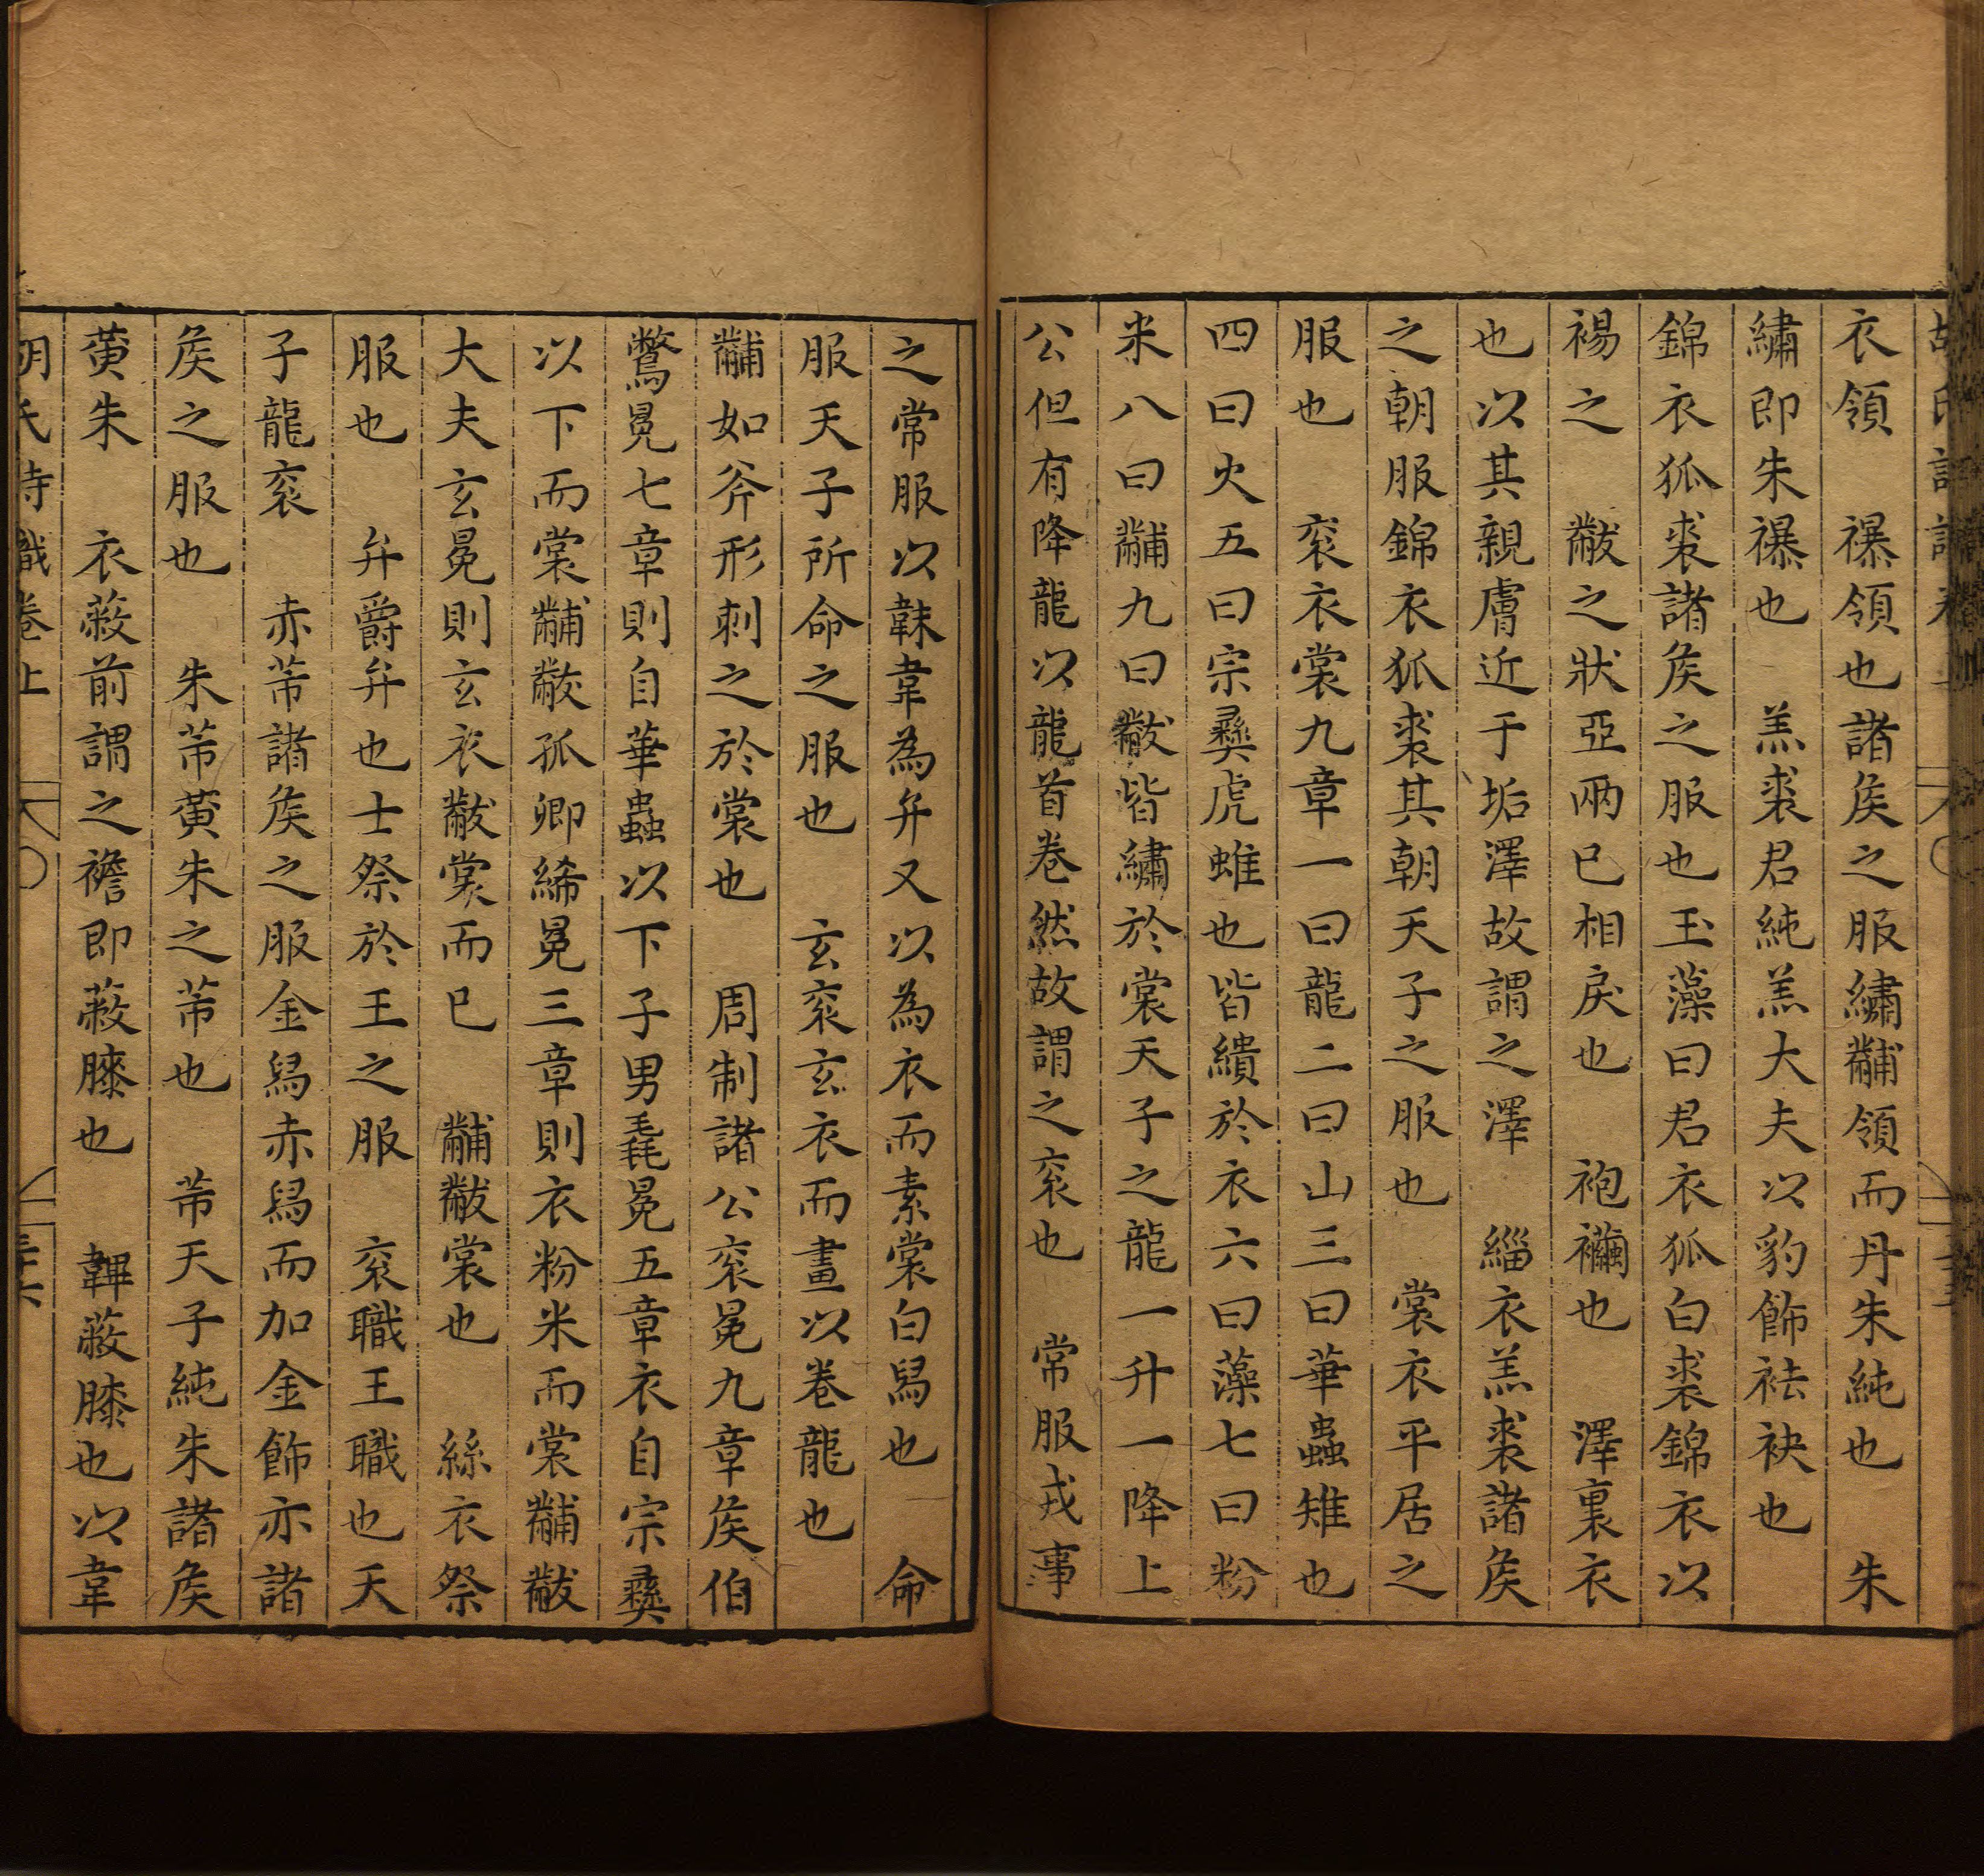 衣領　襮領也諸矦之服繡黼領而丹朱純也　朱
繡即朱襮也　羔裘君純羔大夫以豹飾袪袂也
錦衣狐裘諸矦之服也玉藻曰君衣狐白裘錦衣以
裼之　黻之狀亞兩已相戾也　袍襺也　澤裏衣
也以其親膚近于垢澤故謂之澤　緇衣羔裘諸矦
之朝服錦衣狐裘其朝天子之服也　裳衣平居之
服也　衮衣裳九章一曰龍二曰山三曰華蟲雉也
四曰火五曰宗彝虎蜼也皆繢於衣六曰藻七曰粉
米八曰黼九曰黻皆繡於裳天子之龍一升一降上
公但有降龍以龍首卷然故謂之衮也　常服戎事
之常服以韎韋為弁又以為衣而素裳白舄也　命
服天子所命之服也　玄衮玄衣而畫以卷龍也
黼如斧形刺之於裳也　周制諸公衮冕九章矦伯
鷩冕七章則自華蟲以下子男毳冕五章衣自宗彝
以下而裳黼黻孤卿絺冕三章則衣粉米而裳黼黻
大夫玄冕則玄衣黻裳而已　黼黻裳也　絲衣祭
服也　弁爵弁也士祭於王之服　衮職王職也天
子龍衮　赤芾諸矦之服金舄赤舄而加金飾亦諸
矦之服也　朱芾黃朱之芾也　芾天子純朱諸矦
黃朱　衣蔽前謂之襜即蔽膝也　韠蔽膝也以韋
胡氏詩識卷上